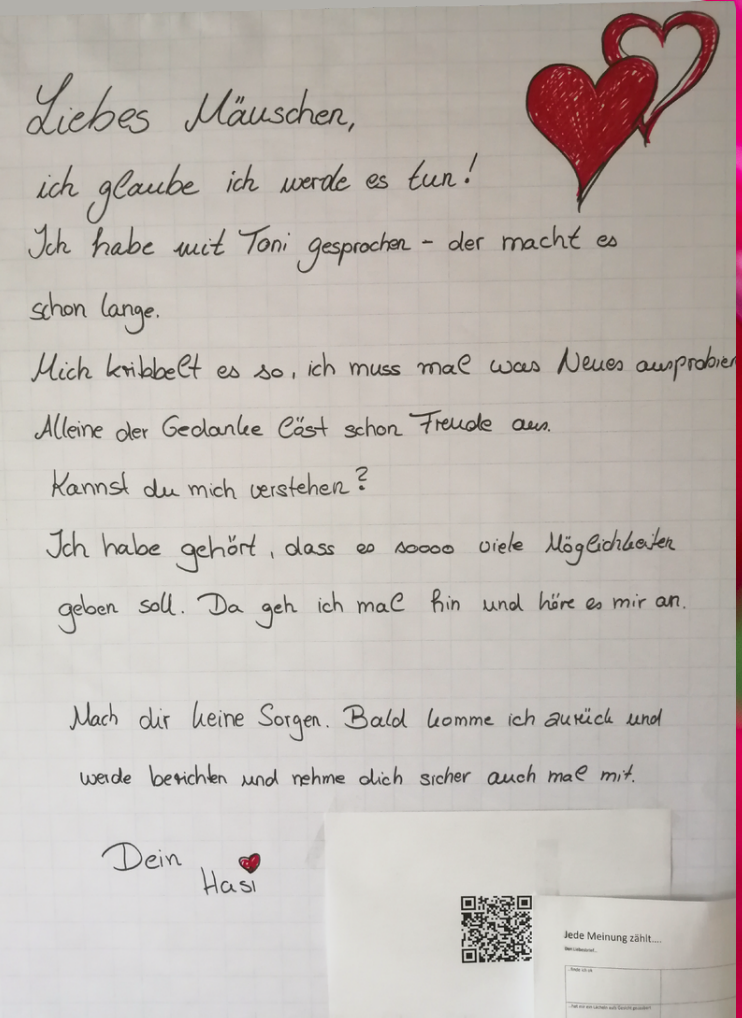 Liebes Mäuschen,
ich glaube ich werde es tun!
Ich habe mit Toni gesprochen - der macht es
schon lange.
Mich kribbelt es so, ich muss mal was Neues ausprobier
Alleine der Gedanke löst schon Freude aus.
Kannst du mich verstehen?
Ich habe gehört, dass es soooo viele Möglichkeiten
geben soll. Da geh ich mal hin und höre es mir an.
Mach dir keine Sorgen. Bald komme ich zurück und
werde berichten und nehme dich sicher auch mal mit.
Dein
Hasi
Jede Meinung zählt....